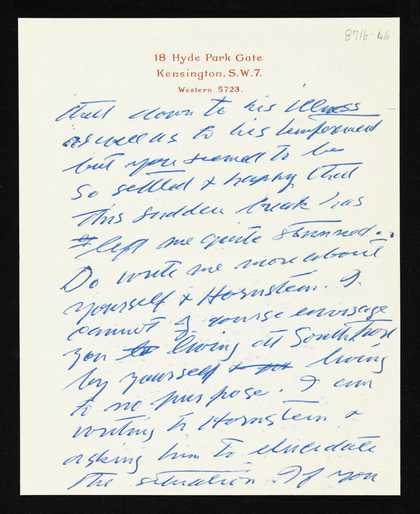 8716-46
18 Hyde Park Gate
Kensington, S.W.7.
Western 5723.
that down to his illness
as well as to his
but you seemed to be
so settled & happy that
this sudden break has
left me quite stunned.
Do write me more about
yourself & Hornstein. I
cannot of course envisage
you living at
by yourself & living
to no purpose. I am
writing to Hornstein &
asking him to elucidate
the situation. If you